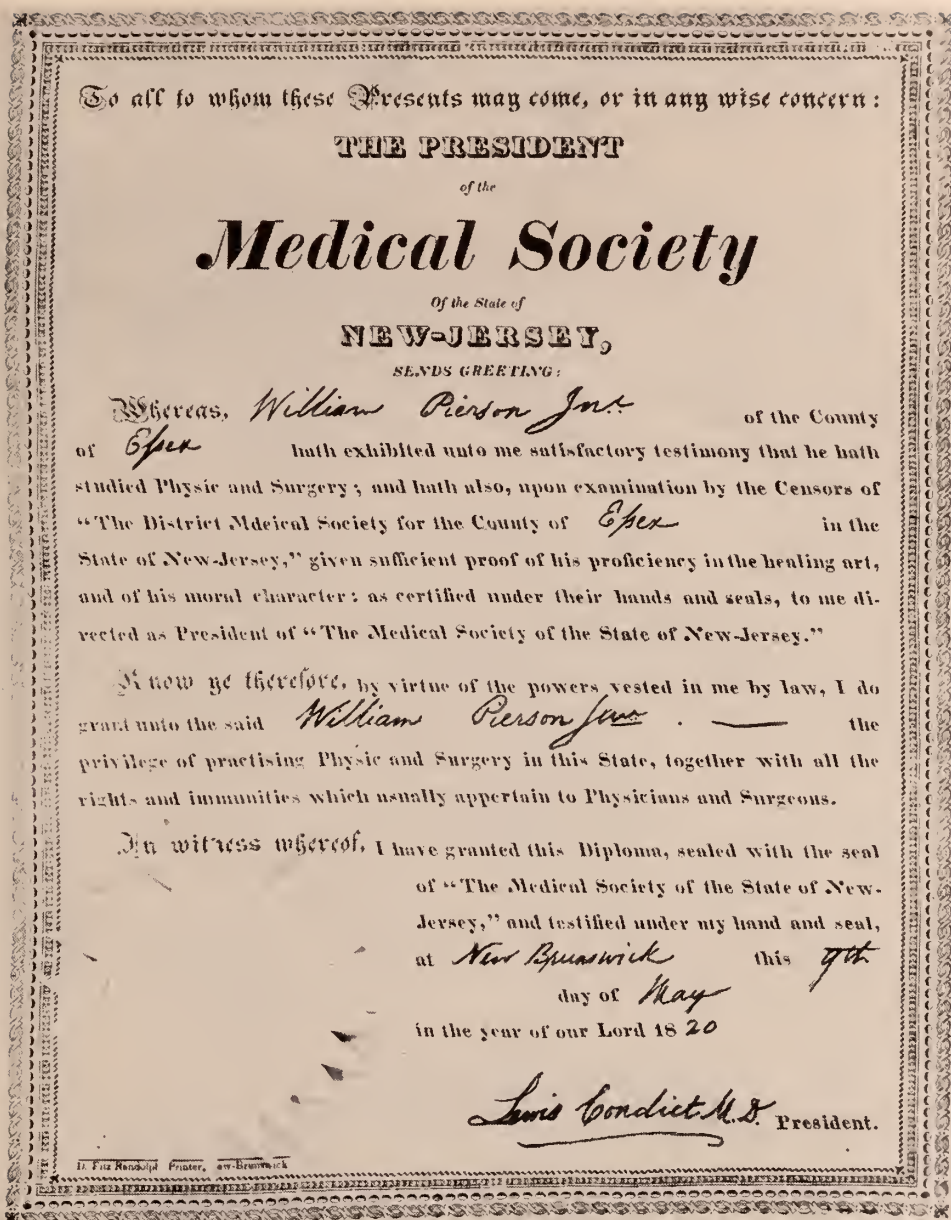 To all to whom these Presents may come, or in any wise concern:
THE PRESIDENT
of the
Medical Society
Of the State of
NEW-JERSEY,
SENDS GREETING:
Whereas, William Pierson Junr of the County
of Essex hath exhibited unto me satisfactory testimony that he hath
studied Physic and Surgery; and hath also, upon examination by the Censors of
"The District Mdeical Society for the County of Essex in the
State of New-Jersey," given sufficient proof of his proficiency in the healing art,
and of his moral character: as certified under their hands and seals, to me di-
rected as President of "The Medical Society of the State of New-Jersey."
Know ye therefore, by virtue of the powers vested in me by law, I do
grant unto the said William Pierson Junr . — the
privilege of practising Physic and Surgery in this State, together with all the
rights and immunities which usually appertain to Physicians and Surgeons.
In witness whereof, I have granted this Diploma, sealed with the seal
of "The Medical Society of the State of New-
Jersey," and testified under my hand and seal,
at New Brunswick this 9th
day of May
in the year of our Lord 1820
Lewis Condict M.D. President.
D. Fitz Randolph Printer, ew-Brunswick